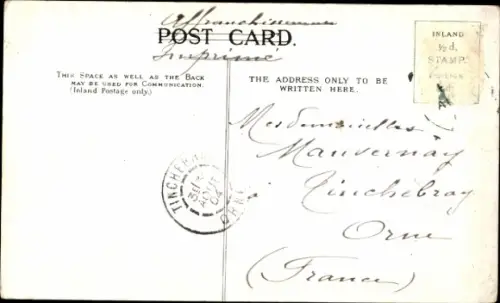 Affranchissement
POST CARD.
Imprimé
THIS SPACE AS WELL AS THE BACK
MAY BE USED FOR COMMUNICATION.
(Inland Postage only.)
THE ADDRESS ONLY TO BE
WRITTEN HERE.
INLAND
½d.
STAMP.
Mesdemoiselles
Mauvernay
Tinchebray
Orne
(France)
TINCHEBRAY
ORNE